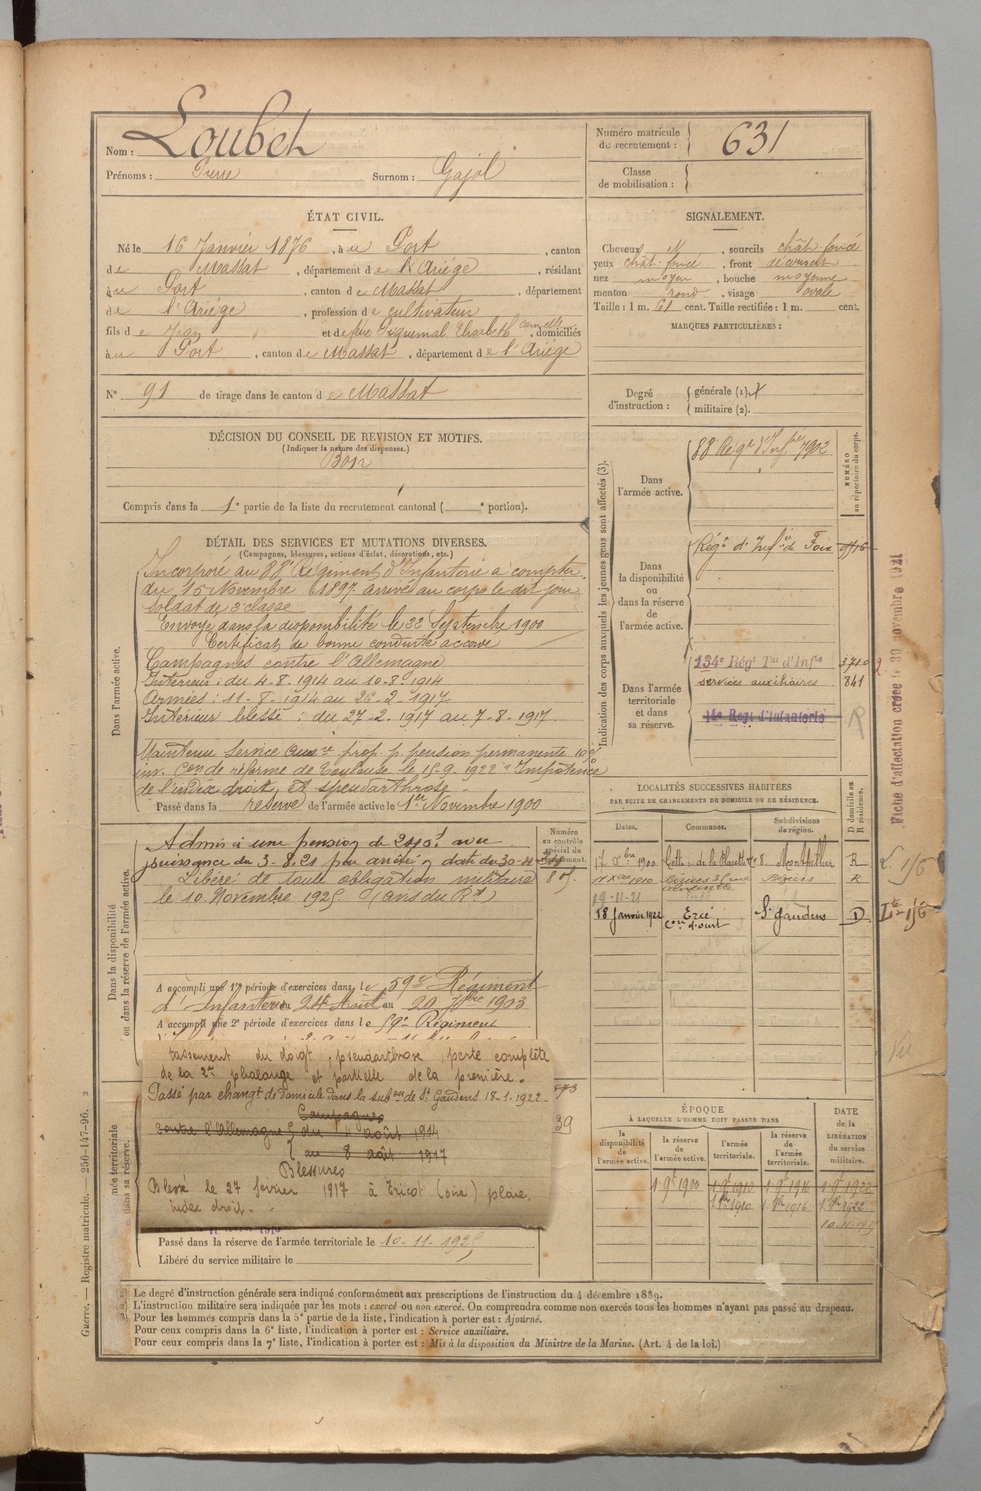 Nom : Loubet
Prénoms : Pierre Surnom : Gajol
Numéro matricule de recrutement : 631
Classe de mobilisation :
ÉTAT CIVIL.
Né le 16 Janvier 1876, à u Port, canton
de Massat, département de l'Ariège, résidant
à u Port, canton de Massat, département
de l'Ariège, profession de cultivateur
fils de Jean et de feu Piquemal Elisabeth, domiciliés
à u Port, canton de Massat, département de l'Ariège
N° 91 de tirage dans le canton de Massat
SIGNALEMENT.
Cheveux N, sourcils chât. foncé
yeux chât. foncé, front découvert
nez moyen, bouche moyenne
menton rond, visage ovale
Taille : 1 m. 61 cent. Taille rectifiée : 1 m. cent.
MARQUES PARTICULIÈRES :
Degré d'instruction : générale (1). X
militaire (2).
DÉCISION DU CONSEIL DE REVISION ET MOTIFS.
(Indiquer la nature des dispenses.)
Bon
Compris dans la 1e partie de la liste du recrutement cantonal ( e portion).
DÉTAIL DES SERVICES ET MUTATIONS DIVERSES.
(Campagnes, blessures, actions d'éclat, décorations, etc.)
Dans l'armée active.
Incorporé au 88e Régiment d'Infanterie à compter
du 15 Novembre 1897 arrivé au corps le dit jour
soldat de 2e classe
Envoyé dans la disponibilité le 22 Septembre 1900
Certificat de bonne conduite accordé
Campagnes contre l'Allemagne
Intérieur : du 4-8-1914 au 10-8-1914
Armées : 11-8-1914 au 26-2-1917
Intérieur blessé : du 27-2-1917 au 7-8-1917
Maintenu service auxre prop. p. pension permanente 10%
inv. Con de réforme de Toulouse le 15-9-1922 "Impotence
de l'index droit, et speudarthrose
Passé dans la réserve de l'armée active le 1er Novembre 1900
Indication des corps auxquels les jeunes gens sont affectés (3).
NUMÉRO au répertoire du corps.
Dans l'armée active.
88e Régt d'Infrie 7902
Dans la disponibilité ou dans la réserve de l'armée active.
Régt d'Infrie de Foix
Dans l'armée territoriale et dans sa réserve.
134e Régt Tal d'Infie 3710
services auxiliaires 841
14e Regt d'Infanterie
R
Fiche d'affectation créée le 30 novembre 1921
LOCALITÉS SUCCESSIVES HABITÉES
PAR SUITE DE CHANGEMENTS DE DOMICILE OU DE RÉSIDENCE.
Dates. Communes. Subdivisions de région. D domicile ou R résidence.
17 8bre 1900 Cette r. de la Placette 8 Montpellier R
1910 Béziers Béziers R
19-11-21
18 Janvier 1922 Ercé Con d'Oust St Gaudens D
Dans la disponibilité ou dans la réserve de l'armée active.
Numéro au contrôle spécial du recrutement.
Admis à une pension de 240f avec
jouissance du 3-8-21 par arrêté en date du 30-4
Libéré de toute obligation militaire
le 10 Novembre 1925
A accompli une 1re période d'exercices dans le 59e Régiment
d'Infanterie du 24 Août au 20 7bre 1903
A accompli une 2e période d'exercices dans le 59e Régiment
tassement du doigt, pseudarthrose, perte complète
de la 2e phalange et partielle de la première.
Passé par changt de domicile dans la subon de St Gaudens 18-1-1922
Campagnes
contre l'Allemagne du 4 août 1914
au 8 août 1917
Blessures
Blessé le 27 février 1917 à Tricot (oise) plaie
index droit.
39
Passé dans la réserve de l'armée territoriale le 10-11-1925
Libéré du service militaire le
ÉPOQUE
À LAQUELLE L'HOMME DOIT PASSER DANS
la disponibilité de l'armée active. la réserve de l'armée active. l'armée territoriale. la réserve de l'armée territoriale.
DATE de la LIBÉRATION du service militaire.
1 9bre 1900 1 9bre 1910 1 9bre 1916 1 9bre 1922
1 8bre 1910 1 8bre 1916 1 8bre 1922
(1) Le degré d'instruction générale sera indiqué conformément aux prescriptions de l'instruction du 4 décembre 1889.
(2) L'instruction militaire sera indiquée par les mots : exercé ou non exercé. On comprendra comme non exercés tous les hommes n'ayant pas passé au drapeau.
(3) Pour les hommes compris dans la 5e partie de la liste, l'indication à porter est : Ajourné.
Pour ceux compris dans la 6e liste, l'indication à porter est : Service auxiliaire.
Pour ceux compris dans la 7e liste, l'indication à porter est : Mis à la disposition du Ministre de la Marine. (Art. 4 de la loi.)
Guerre. — Registre matricule. — 256-147-96.